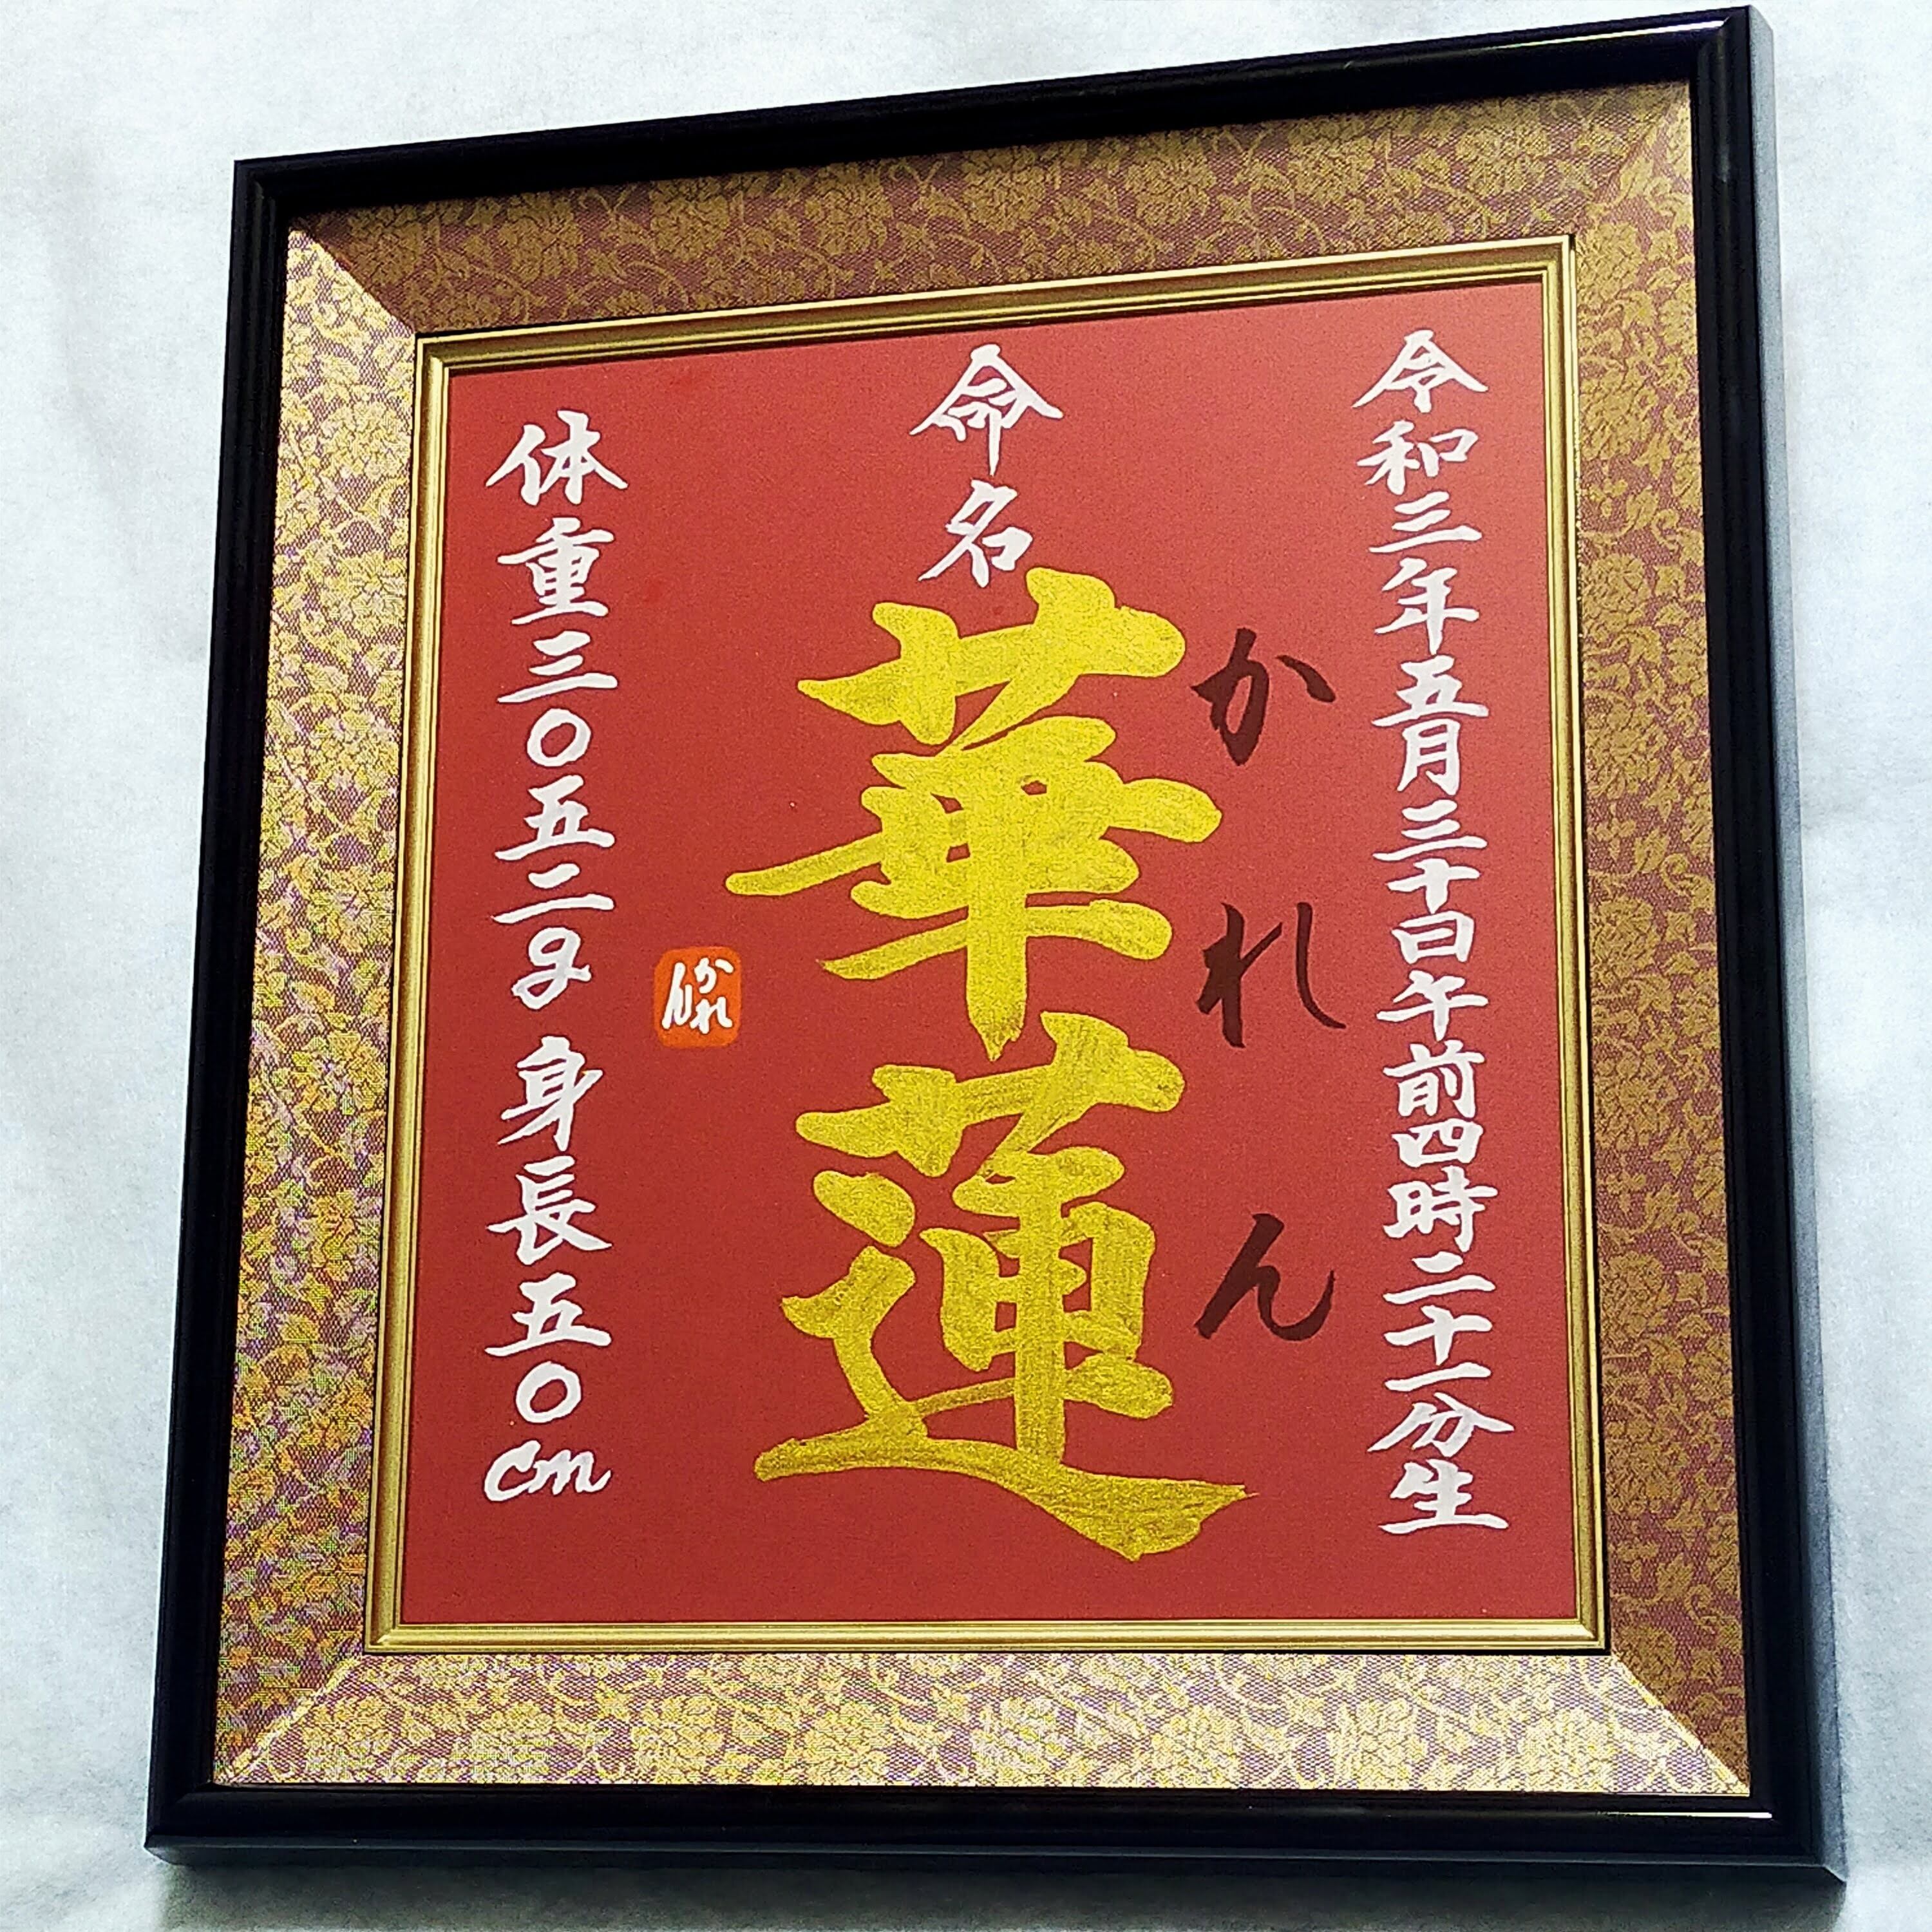 令和三年五月三十日午前四時二十一分生
かれん
命名
華蓮
かれん
体重三〇五二g 身長五〇cm